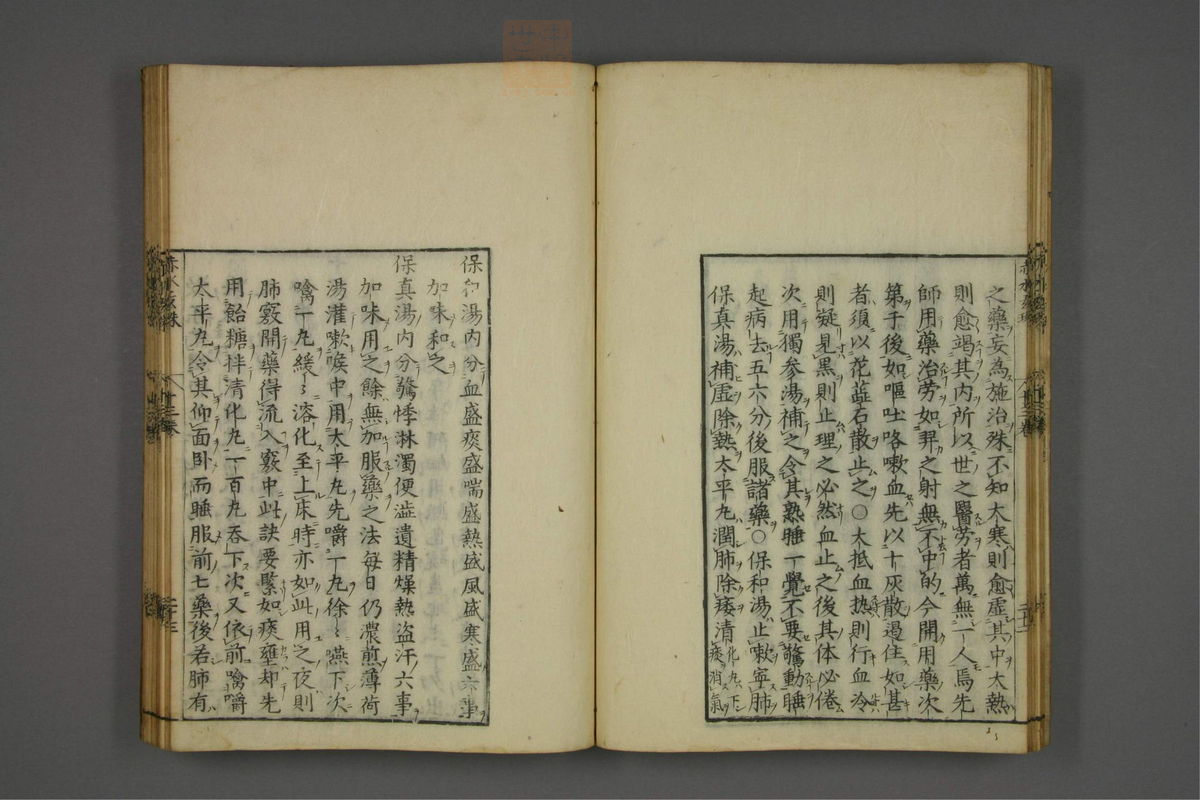 之藥妄為施治殊不知大寒則愈虛其中大熱
則愈竭其内所以世之醫勞者萬無一人焉先
師用藥治勞如羿之射無不中的今開用藥次
第于後如嘔吐咯嗽血先以十灰散遏住如甚
者須以花蕋石散止之〇大抵血热則行血冷
則凝見黒則止理之必然血止之後其体必倦
次用獨参湯補之令其熟睡一覺不要驚動睡
起病去五六分後服諸藥〇保和湯止嗽寧肺
保真湯補虛除熱太平丸潤肺除痿清化丸下痰消氣
保和湯内分血盛痰盛喘盛熱盛風盛寒盛六事
加味和之
保真湯内分驚悸淋濁便澁遺精燥熱盗汗六事
加味用之餘無加服藥之法每日仍濃煎薄荷
湯灌嗽喉中用太平丸先嚼一丸徐〻嚥下次
噙一丸緩〻溶化至上床時亦如此用之夜則
肺竅開藥得流入竅中此訣要緊如痰壅却先
用飴糖拌清化丸一百丸吞下次又依前噙嚼
太平丸令其仰面卧而睡服前七藥後若肺有
赤水玄珠
十三巻
二十三